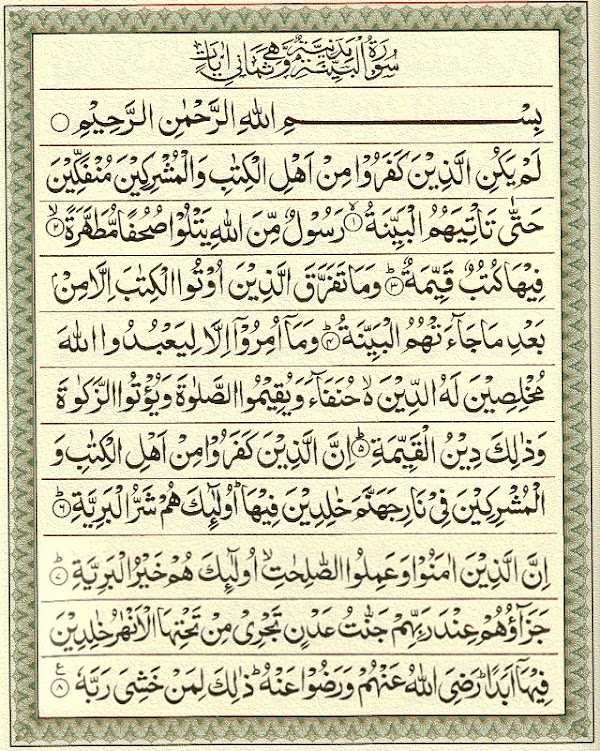 سُوْرَةُ الْبَيِّنَةِ مَدَنِيَّةٌ وَّهِيَ ثَمَانِيْ اٰيَاتٍ
بِسْــــــــــمِ اللهِ الرَّحْمٰنِ الرَّحِيْمِ ○
لَمْ يَكُنِ الَّذِيْنَ كَفَرُوْا مِنْ اَهْلِ الْكِتٰبِ وَالْمُشْرِكِيْنَ مُنْفَكِّيْنَ
حَتّٰى تَاْتِيَهُمُ الْبَيِّنَةُ ۙ﴿۱﴾ رَسُوْلٌ مِّنَ اللهِ يَتْلُوْا صُحُفًا مُّطَهَّرَةً ۙ﴿۲﴾
فِيْهَا كُتُبٌ قَيِّمَةٌ ؕ﴿۳﴾ وَمَا تَفَرَّقَ الَّذِيْنَ اُوْتُوا الْكِتٰبَ اِلَّا مِنْۢ
بَعْدِ مَا جَآءَتْهُمُ الْبَيِّنَةُ ؕ﴿۴﴾ وَمَاۤ اُمِرُوْۤا اِلَّا لِيَعْبُدُوا اللهَ
مُخْلِصِيْنَ لَهُ الدِّيْنَ ۙ حُنَفَآءَ وَيُقِيْمُوا الصَّلٰوةَ وَيُؤْتُوا الزَّكٰوةَ
وَذٰلِكَ دِيْنُ الْقَيِّمَةِ ؕ﴿۵﴾ اِنَّ الَّذِيْنَ كَفَرُوْا مِنْ اَهْلِ الْكِتٰبِ وَ
الْمُشْرِكِيْنَ فِيْ نَارِ جَهَنَّمَ خٰلِدِيْنَ فِيْهَا ؕ اُولٰٓئِكَ هُمْ شَرُّ الْبَرِيَّةِ ؕ﴿۶﴾
اِنَّ الَّذِيْنَ اٰمَنُوْا وَعَمِلُوا الصّٰلِحٰتِ ۙ اُولٰٓئِكَ هُمْ خَيْرُ الْبَرِيَّةِ ؕ﴿۷﴾
جَزَآؤُهُمْ عِنْدَ رَبِّهِمْ جَنّٰتُ عَدْنٍ تَجْرِيْ مِنْ تَحْتِهَا الْاَنْهٰرُ خٰلِدِيْنَ
فِيْهَاۤ اَبَدًا ؕ رَضِيَ اللهُ عَنْهُمْ وَرَضُوْا عَنْهُ ؕ ذٰلِكَ لِمَنْ خَشِيَ رَبَّهٗ ﴿۸﴾ ع